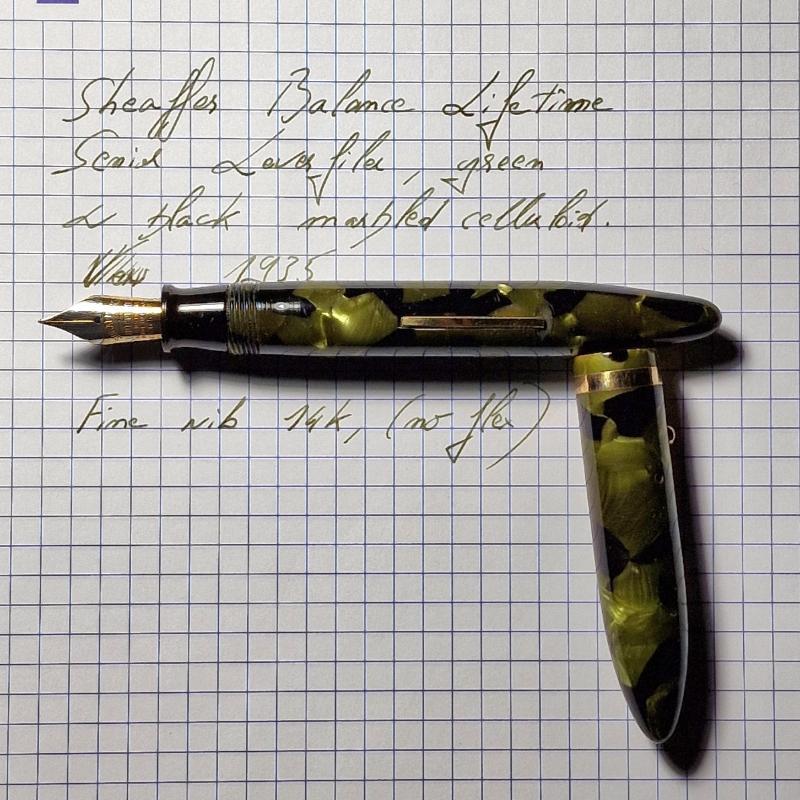 Sheaffer Balance Lifetime
Senior Lever filler, green
& black marbled celluloid.
1935
Fine nib 14k, (no flex)